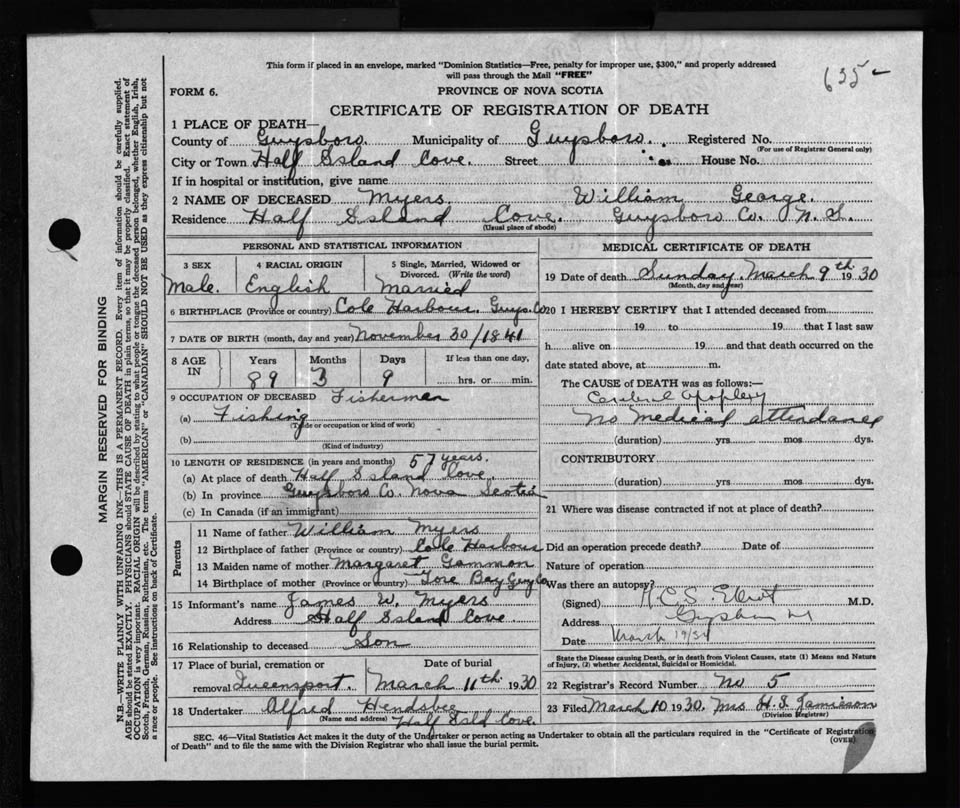 This form if placed in an envelope, marked "Dominion Statistics—Free, penalty for improper use, $300," and properly addressed
will pass through the Mail "FREE"
635
FORM 6.
PROVINCE OF NOVA SCOTIA
CERTIFICATE OF REGISTRATION OF DEATH
1 PLACE OF DEATH—
County of Guysboro Municipality of Guysboro. Registered No.
(For use of Registrar General only)
City or Town Half Island Cove. Street House No.
If in hospital or institution, give name
2 NAME OF DECEASED Myers. William George.
Residence Half Island Cove. Guysboro Co. N. S.
(Usual place of abode)
PERSONAL AND STATISTICAL INFORMATION
3 SEX 4 RACIAL ORIGIN 5 Single, Married, Widowed or
Divorced. (Write the word)
Male. English Married
6 BIRTHPLACE (Province or country) Cole Harbour. Guys. Co
7 DATE OF BIRTH (month, day and year) November 30/1841
8 AGE IN Years Months Days If less than one day,
89 3 9 hrs. or min.
9 OCCUPATION OF DECEASED Fisherman
(a) Fishing
(Trade or occupation or kind of work)
(b)
(Kind of industry)
10 LENGTH OF RESIDENCE (in years and months) 57 years.
(a) At place of death Half Island Cove.
(b) In province Guysboro Co. Nova Scotia
(c) In Canada (if an immigrant)
Parents
11 Name of father William Myers
12 Birthplace of father (Province or country) Cole Harbour
13 Maiden name of mother Margaret Gammon
14 Birthplace of mother (Province or country) Tore Bay Guy Co
15 Informant's name James W. Myers
Address Half Island Cove.
16 Relationship to deceased Son
17 Place of burial, cremation or Date of burial
removal Queensport. March 11th 1930
18 Undertaker Alfred Hendsbee
(Name and address) Half Isld Cove.
MEDICAL CERTIFICATE OF DEATH
19 Date of death Sunday. March 9th 1930
(Month, day and year)
20 I HEREBY CERTIFY that I attended deceased from
19 to 19 that I last saw
h alive on 19 and that death occurred on the
date stated above, at m.
The CAUSE of DEATH was as follows:—
Cerebral apoplexy
No medical attendance
(duration) yrs mos dys.
CONTRIBUTORY
(duration) yrs. mos. dys.
21 Where was disease contracted if not at place of death?
Did an operation precede death? Date of
Nature of operation
Was there an autopsy?
(Signed) M.D.
Address
Date March 19/30
State the Disease causing Death, or in death from Violent Causes, state (1) Means and Nature
of Injury, (2) whether Accidental, Suicidal or Homicidal.
22 Registrar's Record Number No 5
23 Filed March 10 1930. Mrs H. S. Jamieson
(Division Registrar)
SEC. 46—Vital Statistics Act makes it the duty of the Undertaker or person acting as Undertaker to obtain all the particulars required in the "Certificate of Registration
of Death" and to file the same with the Division Registrar who shall issue the burial permit.
(OVER)
MARGIN RESERVED FOR BINDING
N.B.—WRITE PLAINLY WITH UNFADING INK—THIS IS A PERMANENT RECORD. Every item of information should be carefully supplied.
AGE should be stated EXACTLY. PHYSICIANS should STATE CAUSE OF DEATH in plain terms, so that it may be properly classified. Exact statement of
OCCUPATION is very important. RACIAL ORIGIN will be described by stating to what people or tongue the deceased person belonged, whether English, Irish,
Scotch, French, German, Russian, Ruthenian, etc. The terms "AMERICAN" or "CANADIAN" SHOULD NOT BE USED as they express citizenship but not
a race or people. See instructions on back of Certificate.